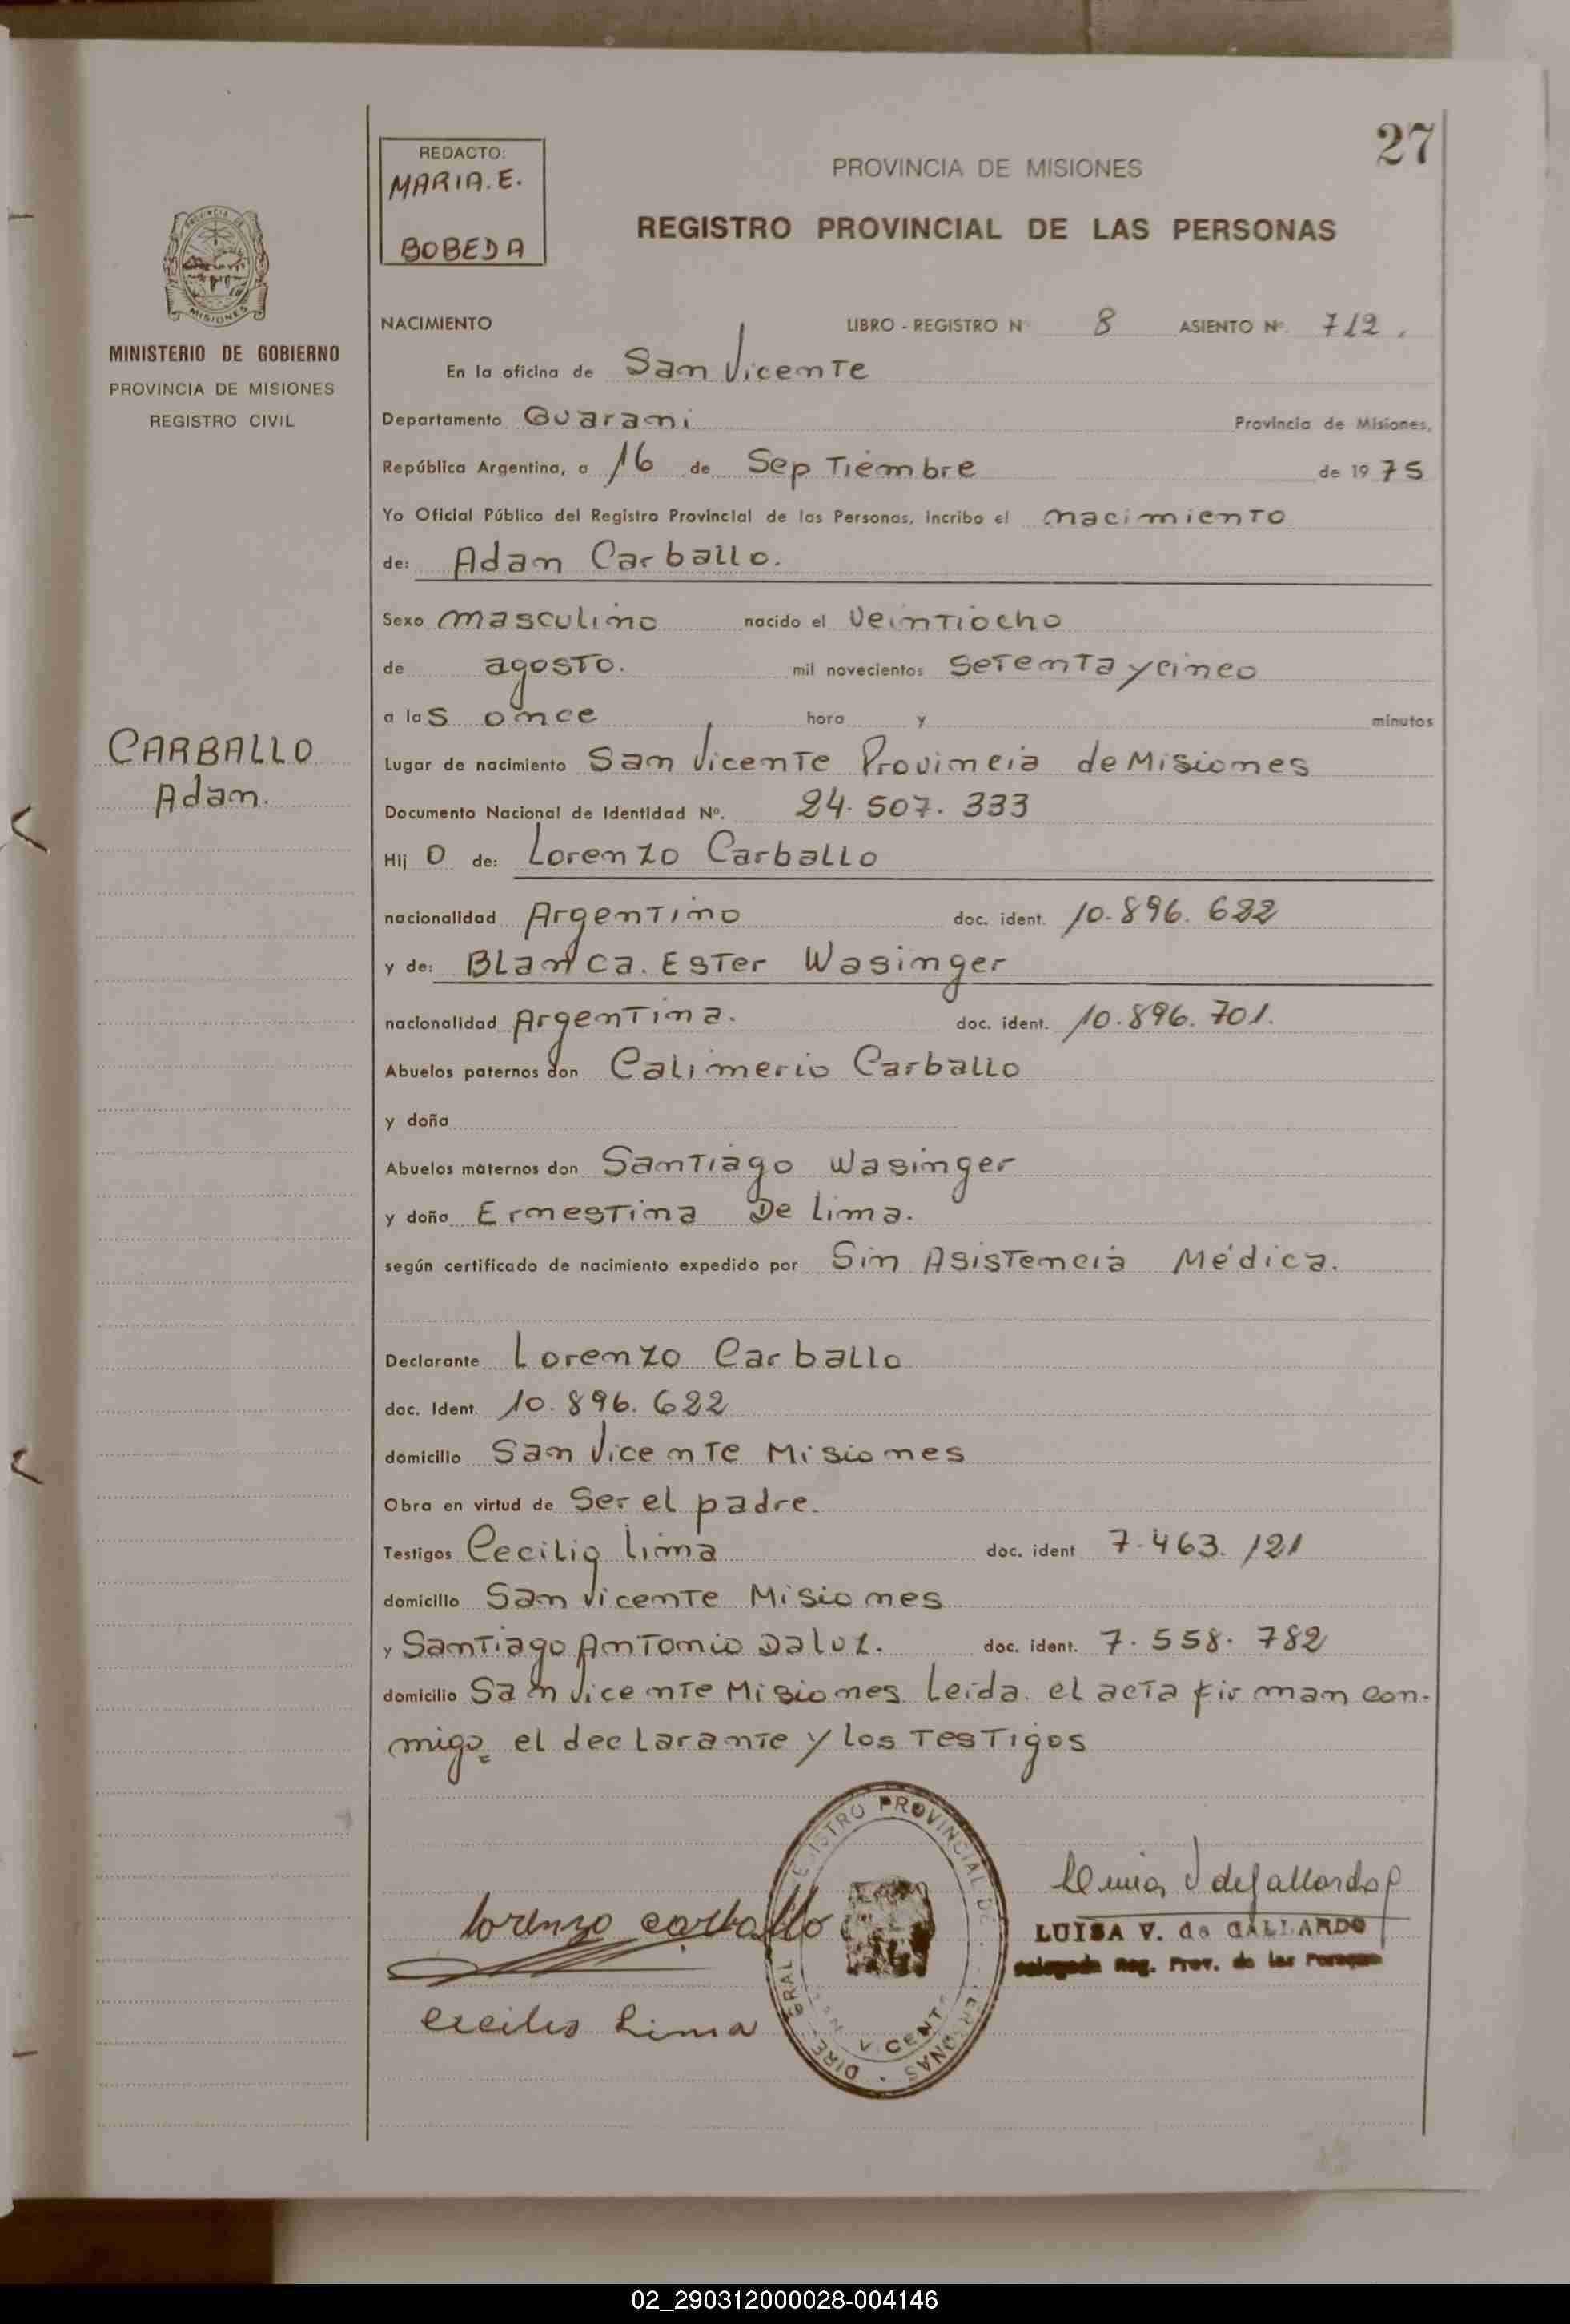 27
REDACTO:
MARIA. E.
BOBEDA
PROVINCIA DE MISIONES
REGISTRO PROVINCIAL DE LAS PERSONAS
MINISTERIO DE GOBIERNO
PROVINCIA DE MISIONES
REGISTRO CIVIL
CARBALLO
Adan.
NACIMIENTO LIBRO - REGISTRO Nº 8 ASIENTO Nº. 712.
En la oficina de San Vicente
Departamento Guarani Provincia de Misiones,
República Argentina, a 16 de Septiembre de 1975
Yo Oficial Público del Registro Provincial de las Personas, incribo el nacimiento
de: Adan Carballo.
Sexo masculino nacido el veintiocho
de agosto. mil novecientos setenta y cinco
a las once hora y minutos
Lugar de nacimiento San Vicente Provincia de Misiones
Documento Nacional de Identidad Nº. 24.507.333
Hijo de: Lorenzo Carballo
nacionalidad Argentino doc. ident. 10.896.622
y de: Blanca. Ester Wasinger
nacionalidad Argentina. doc. ident. 10.896.701.
Abuelos paternos don Calimerio Carballo
y doña
Abuelos maternos don Santiago Wasinger
y doña Ernestina De lima.
según certificado de nacimiento expedido por Sin Asistencia Médica.
Declarante Lorenzo Carballo
doc. Ident. 10.896.622
domicilio San Vicente Misiones
Obra en virtud de Ser el padre.
Testigos Cecilio lima doc. ident 7.463.121
domicilio San Vicente Misiones
y Santiago Antonio Daluz. doc. ident. 7.558.782
domicilio San Vicente Misiones Leída el acta firman con-
migo el declarante y los Testigos
lorenzo carballo
Cecilio Lima
LUISA V. de GALLARDO
Delegada Reg. Prov. de las Personas
PROVINCIAL DE
02_290312000028-004146